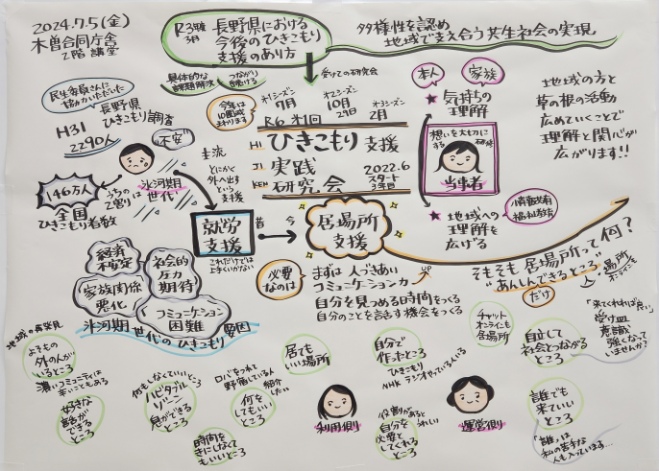 2024.7.5(金)
木曽合同庁舎
2階 講堂
R3年
3月
長野県における
今後のひきこもり
支援のあり方
多様性を認め
地域で支え合う共生社会の実現
具体的な
つながり
受けての研究会
民生委員さんに
協力いただいた
長野県
ひきこもり調査
H31
2290人
オ1シーズン
7月
オ2シーズン
10月
29日
オ3シーズン
2月
R6 オ1回
ひきこもり支援
HI
実践
JI
研究会
KEN
2022.6
スタート
3年目
本人
家族
★気持ちの
理解
想いを大切に
する
当事者
★地域への
理解を
広げる
地域の方と
草の根の活動
広めていくことで
理解と関心が
広がります!!
不安
146万人
全国
ひきこもり者数
氷河期
世代
主流
とにかく
外へ出す
という
支援
就労
支援
これだけでは
上手くいかない
昔
今
居場所
支援
必要
なのは
まずは 人づきあい
コミュニケーション力 UP
自分を見つめる時間をつくる
自分のことを話す機会をつくる
そもそも居場所って何?
"あんしんできるところ"
だけ
経済
不安定
社会的
圧力
期待
家族関係
悪化
コミュニケーション
困難
氷河期世代のひきこもり要因
地域の再発見
よそもの
外の人が
いるところ
濃いコミュニティは
辛いこともある
好きな
話が
できる
ところ
何もしなくていいところ
息ができる
ところ
何を
しても
いい
ところ
時間を
気にしなくて
もいい
ところ
居ても
いい場所
利用側
自分で
作ったところ
ひきこもり
NHK ラジオやっている人
役割があると
うれしい
自分を
必要と
してくれる
ところ
運営側
チャット
オンラインも
居場所
自立して
社会とつながる
ところ
「来てくれればいい」
受け皿
意識
強くなって
いませんか?
誰でも
来ていい
ところ
「誰」は
私の苦手な
人も入っています…